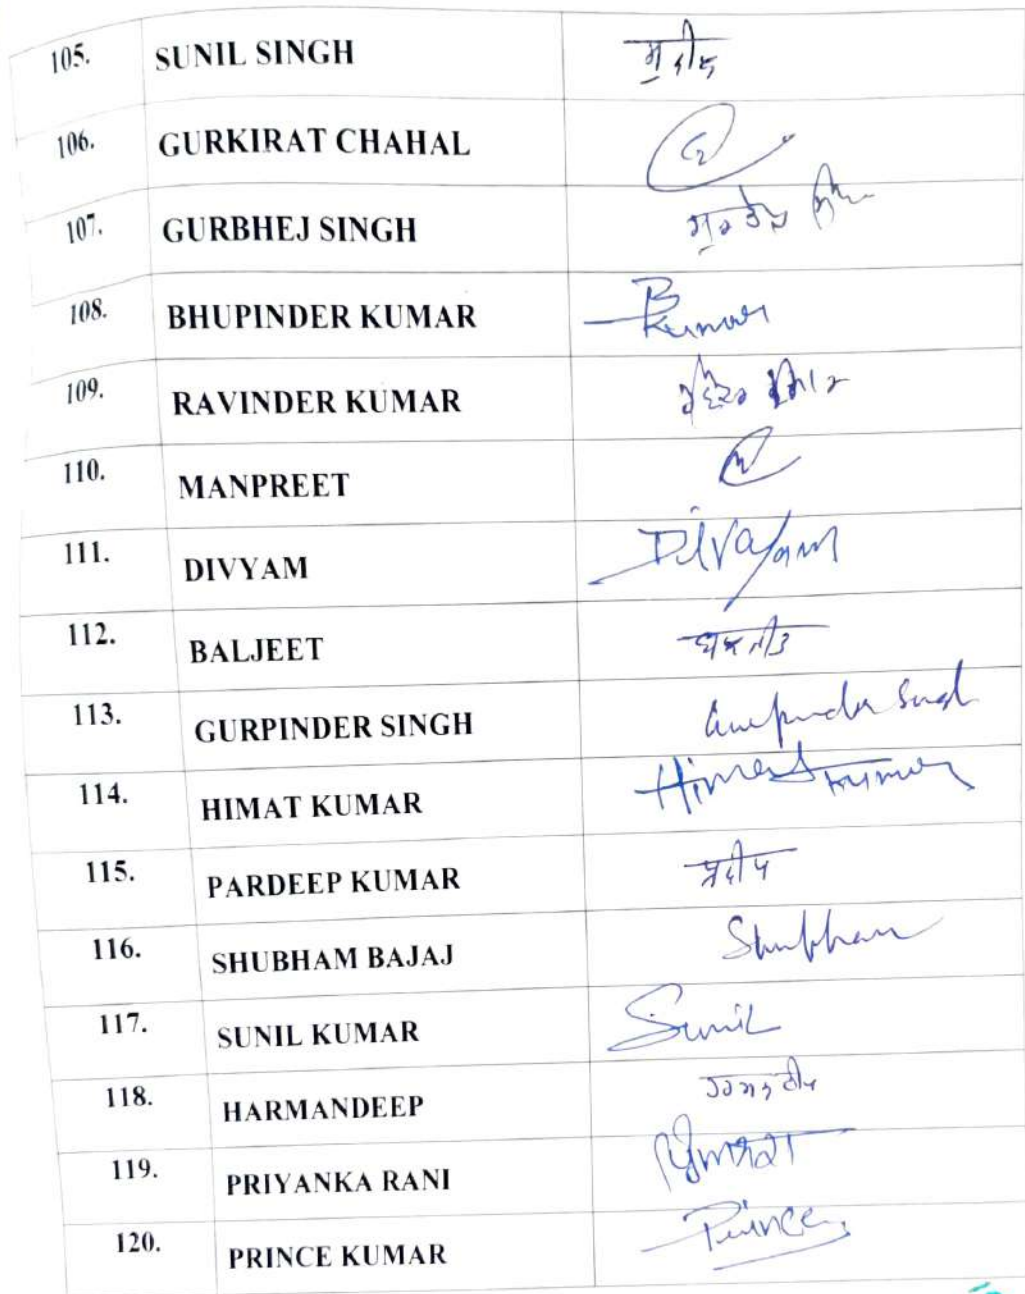 105. SUNIL SINGH
106. GURKIRAT CHAHAL
107. GURBHEJ SINGH
108. BHUPINDER KUMAR B Kumar
109. RAVINDER KUMAR
110. MANPREET
111. DIVYAM Divayam
112. BALJEET
113. GURPINDER SINGH Gurpinder Singh
114. HIMAT KUMAR Himat Kumar
115. PARDEEP KUMAR प्रदीप
116. SHUBHAM BAJAJ Shubham
117. SUNIL KUMAR Sunil
118. HARMANDEEP
119. PRIYANKA RANI
120. PRINCE KUMAR Prince